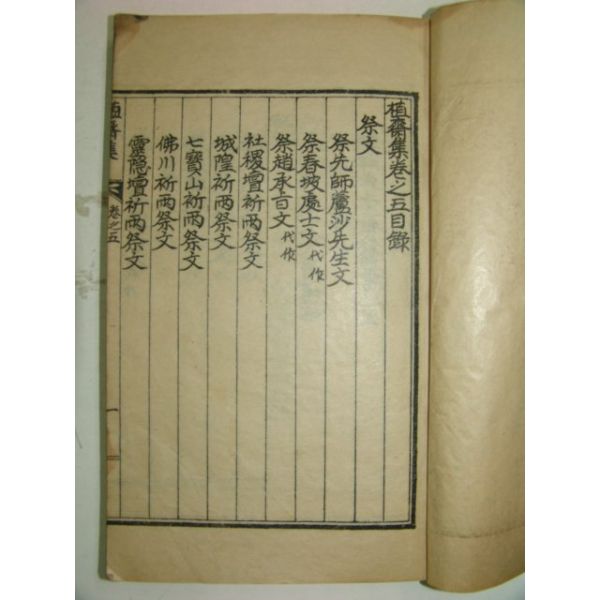 植齋集卷之五目錄
祭文
祭先師蘆沙先生文
祭春坡處士文 代作
祭趙承旨文 代作
社稷壇祈雨祭文
城隍祈雨祭文
七寶山祈雨祭文
佛川祈雨祭文
靈隱壇祈雨祭文
植齋集 卷之五 一